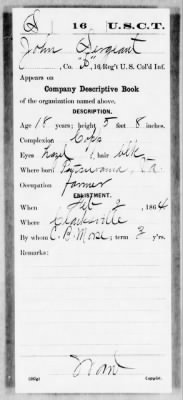 S 16 U.S.C.T.
John Sergeant
, Co. "B", 16 Reg't U. S. Col'd Inf.
Appears on
Company Descriptive Book
of the organization named above.
DESCRIPTION.
Age 18 years; height 5 feet 8 inches.
Complexion Cop
Eyes hazel, hair blk
Where born Va.
Occupation Farmer
ENLISTMENT.
When Feb 2, 1864
Where Clarksville
By whom C. B. Morse; term 3 y'rs.
Remarks:
Ward
(382g) Copyist.